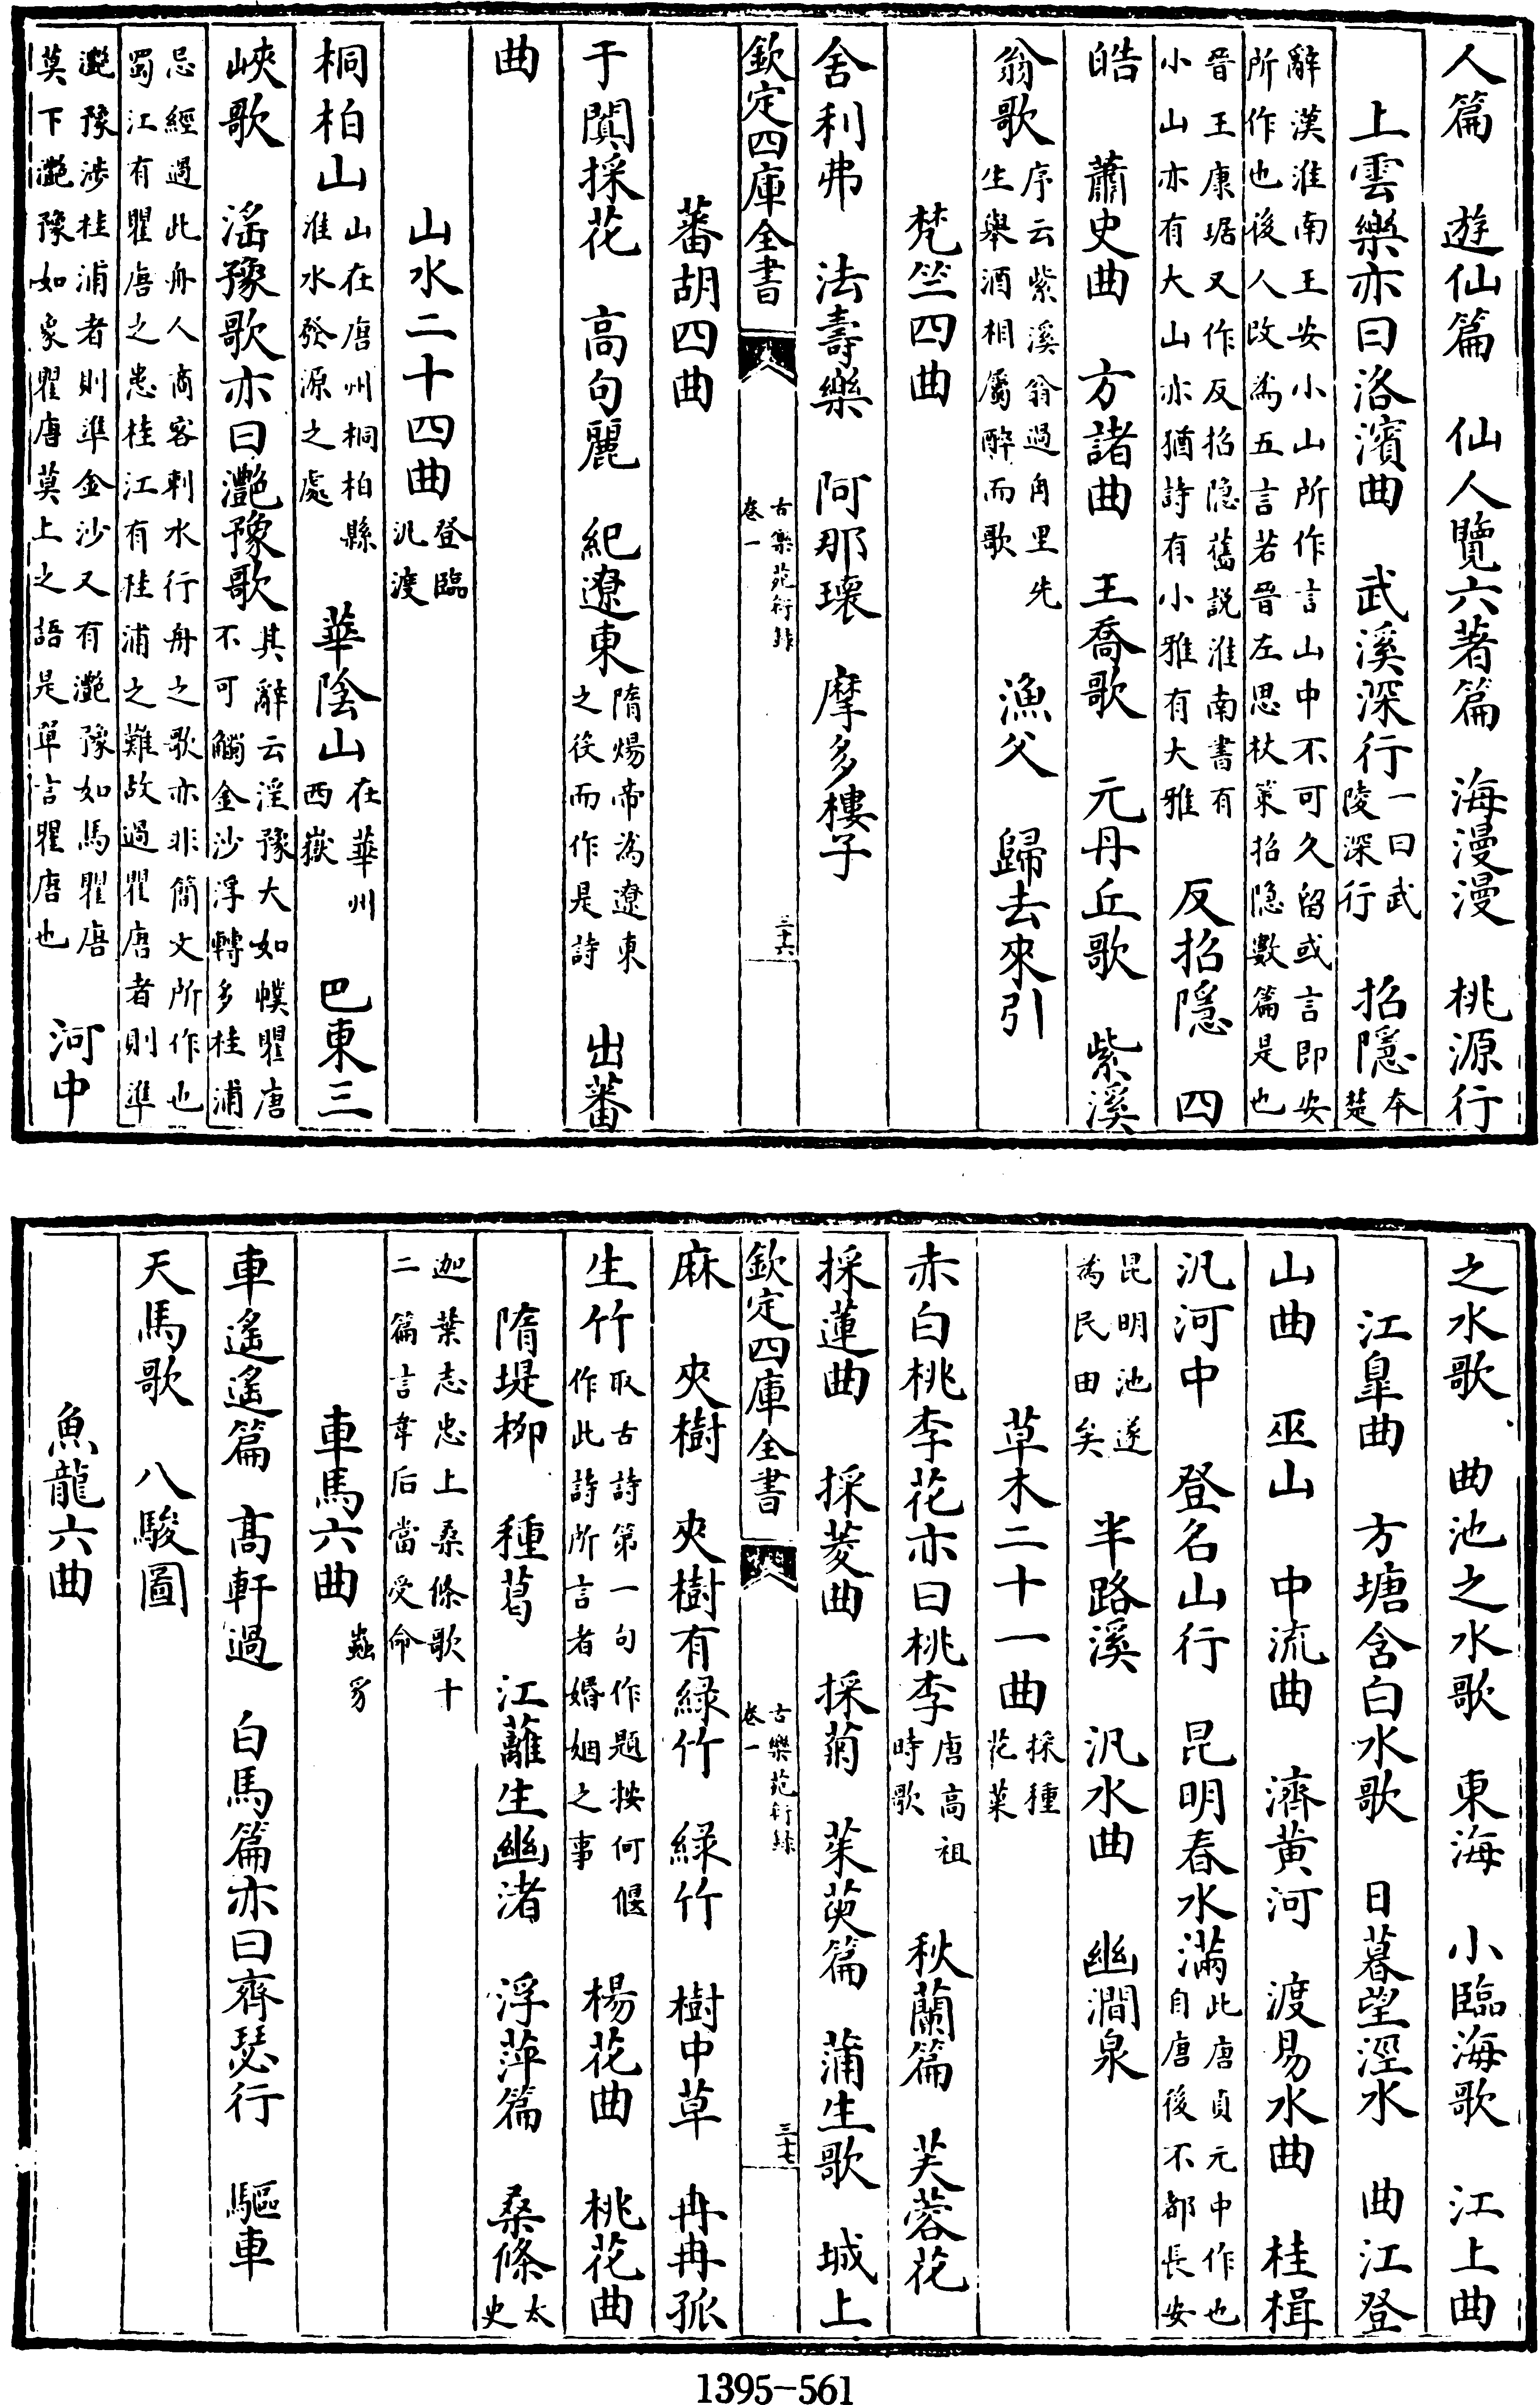 人篇　遊仙篇　仙人覽六著篇　海漫漫　桃源行
上雲樂亦曰洛濱曲　武溪深行一曰武陵深行　招隱本楚
辭漢淮南王安小山所作言山中不可久留或言即安所作也後人改為五言若晉左思杖策招隐數篇是也
晉王康琚又作反招隐舊説淮南書有小山亦有大山亦猶詩有小雅有大雅　反招隱　四
皓　蕭史曲　方諸曲　王喬歌　元丹丘歌　紫溪
翁歌序云紫溪翁過甪里先生舉酒相屬醉而歌　漁父　歸去來引
梵竺四曲
舍利弗　法壽樂　阿那瓌　摩多樓子
欽定四庫全書　古樂苑衍録卷一　三十六
蕃胡四曲
于闐採花　高句麗　紀遼東隋煬帝為遼東之役而作是詩　出蕃
曲
山水二十四曲登臨汎渡
桐柏山山在唐州桐柏縣淮水發源之處　華陰山在華州西嶽　巴東三
峽歌　滛豫歌亦曰灔豫歌其辭云淫豫大如幞瞿唐不可觸金沙浮轉多桂浦
忌經過此舟人商客刺水行舟之歌亦非簡文所作也蜀江有瞿唐之患桂江有桂浦之難故過瞿唐者則準
灔豫涉桂浦者則準金沙又有灔豫如馬瞿唐莫下灔豫如象瞿唐莫上之語是單言瞿唐也　河中
之水歌　曲池之水歌　東海　小臨海歌　江上曲
江臯曲　方塘含白水歌　日暮望涇水　曲江登
山曲　巫山　中流曲　濟黄河　渡易水曲　桂楫
汎河中　登名山行　昆明春水滿此唐貞元中作也自唐後不都長安
昆明池遂為民田矣　半路溪　汎水曲　幽澗泉
草木二十一曲採種花菜
赤白桃李花亦曰桃李唐高祖時歌　秋蘭篇　芙蓉花
採蓮曲　採菱曲　採菊　茱萸篇　蒲生歌　城上
欽定四庫全書　古樂苑衍録卷一　三十七
麻　夾樹　夾樹有緑竹　緑竹　樹中草　冉冉孤
生竹取古詩第一句作題按何偃作此詩所言者婚姻之事　楊花曲　桃花曲
隋堤柳　種葛　江蘺生幽渚　浮萍篇　桑條太史
迦葉志忠上桑條歌十二篇言韋后當受命
車馬六曲蟲豸
車遙遙篇　高軒過　白馬篇亦曰齊瑟行　驅車
天馬歌　八駿圖
魚龍六曲
1395-561